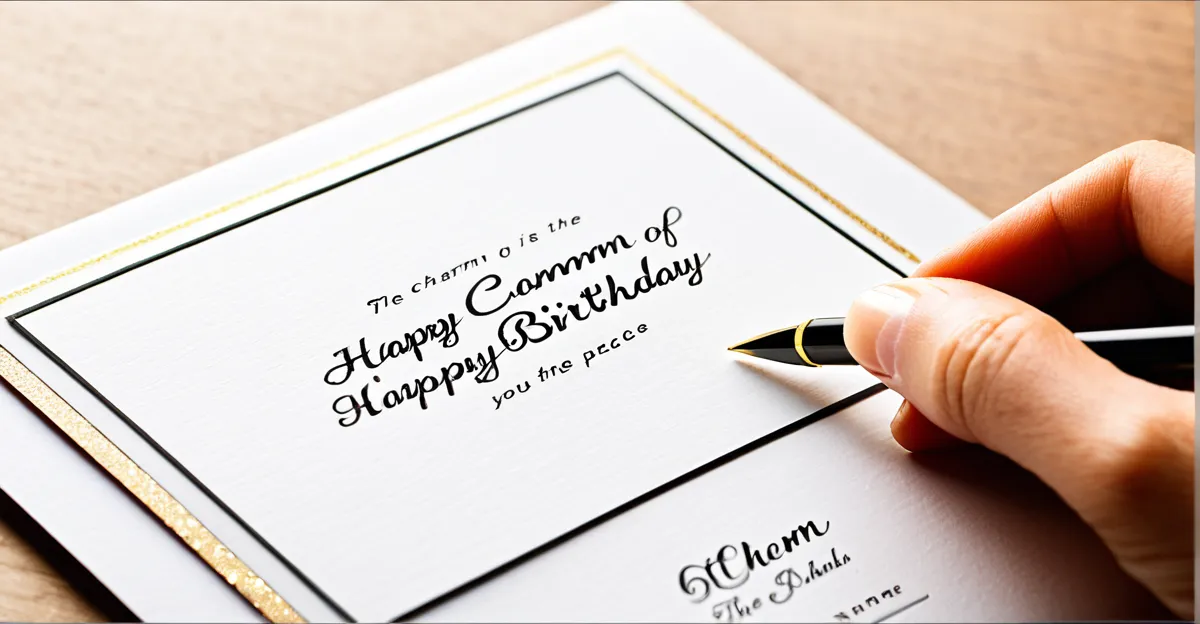 The charm o is the
Happy Cammm of
Happy Birthday
you the pecce
Chern
The
Name